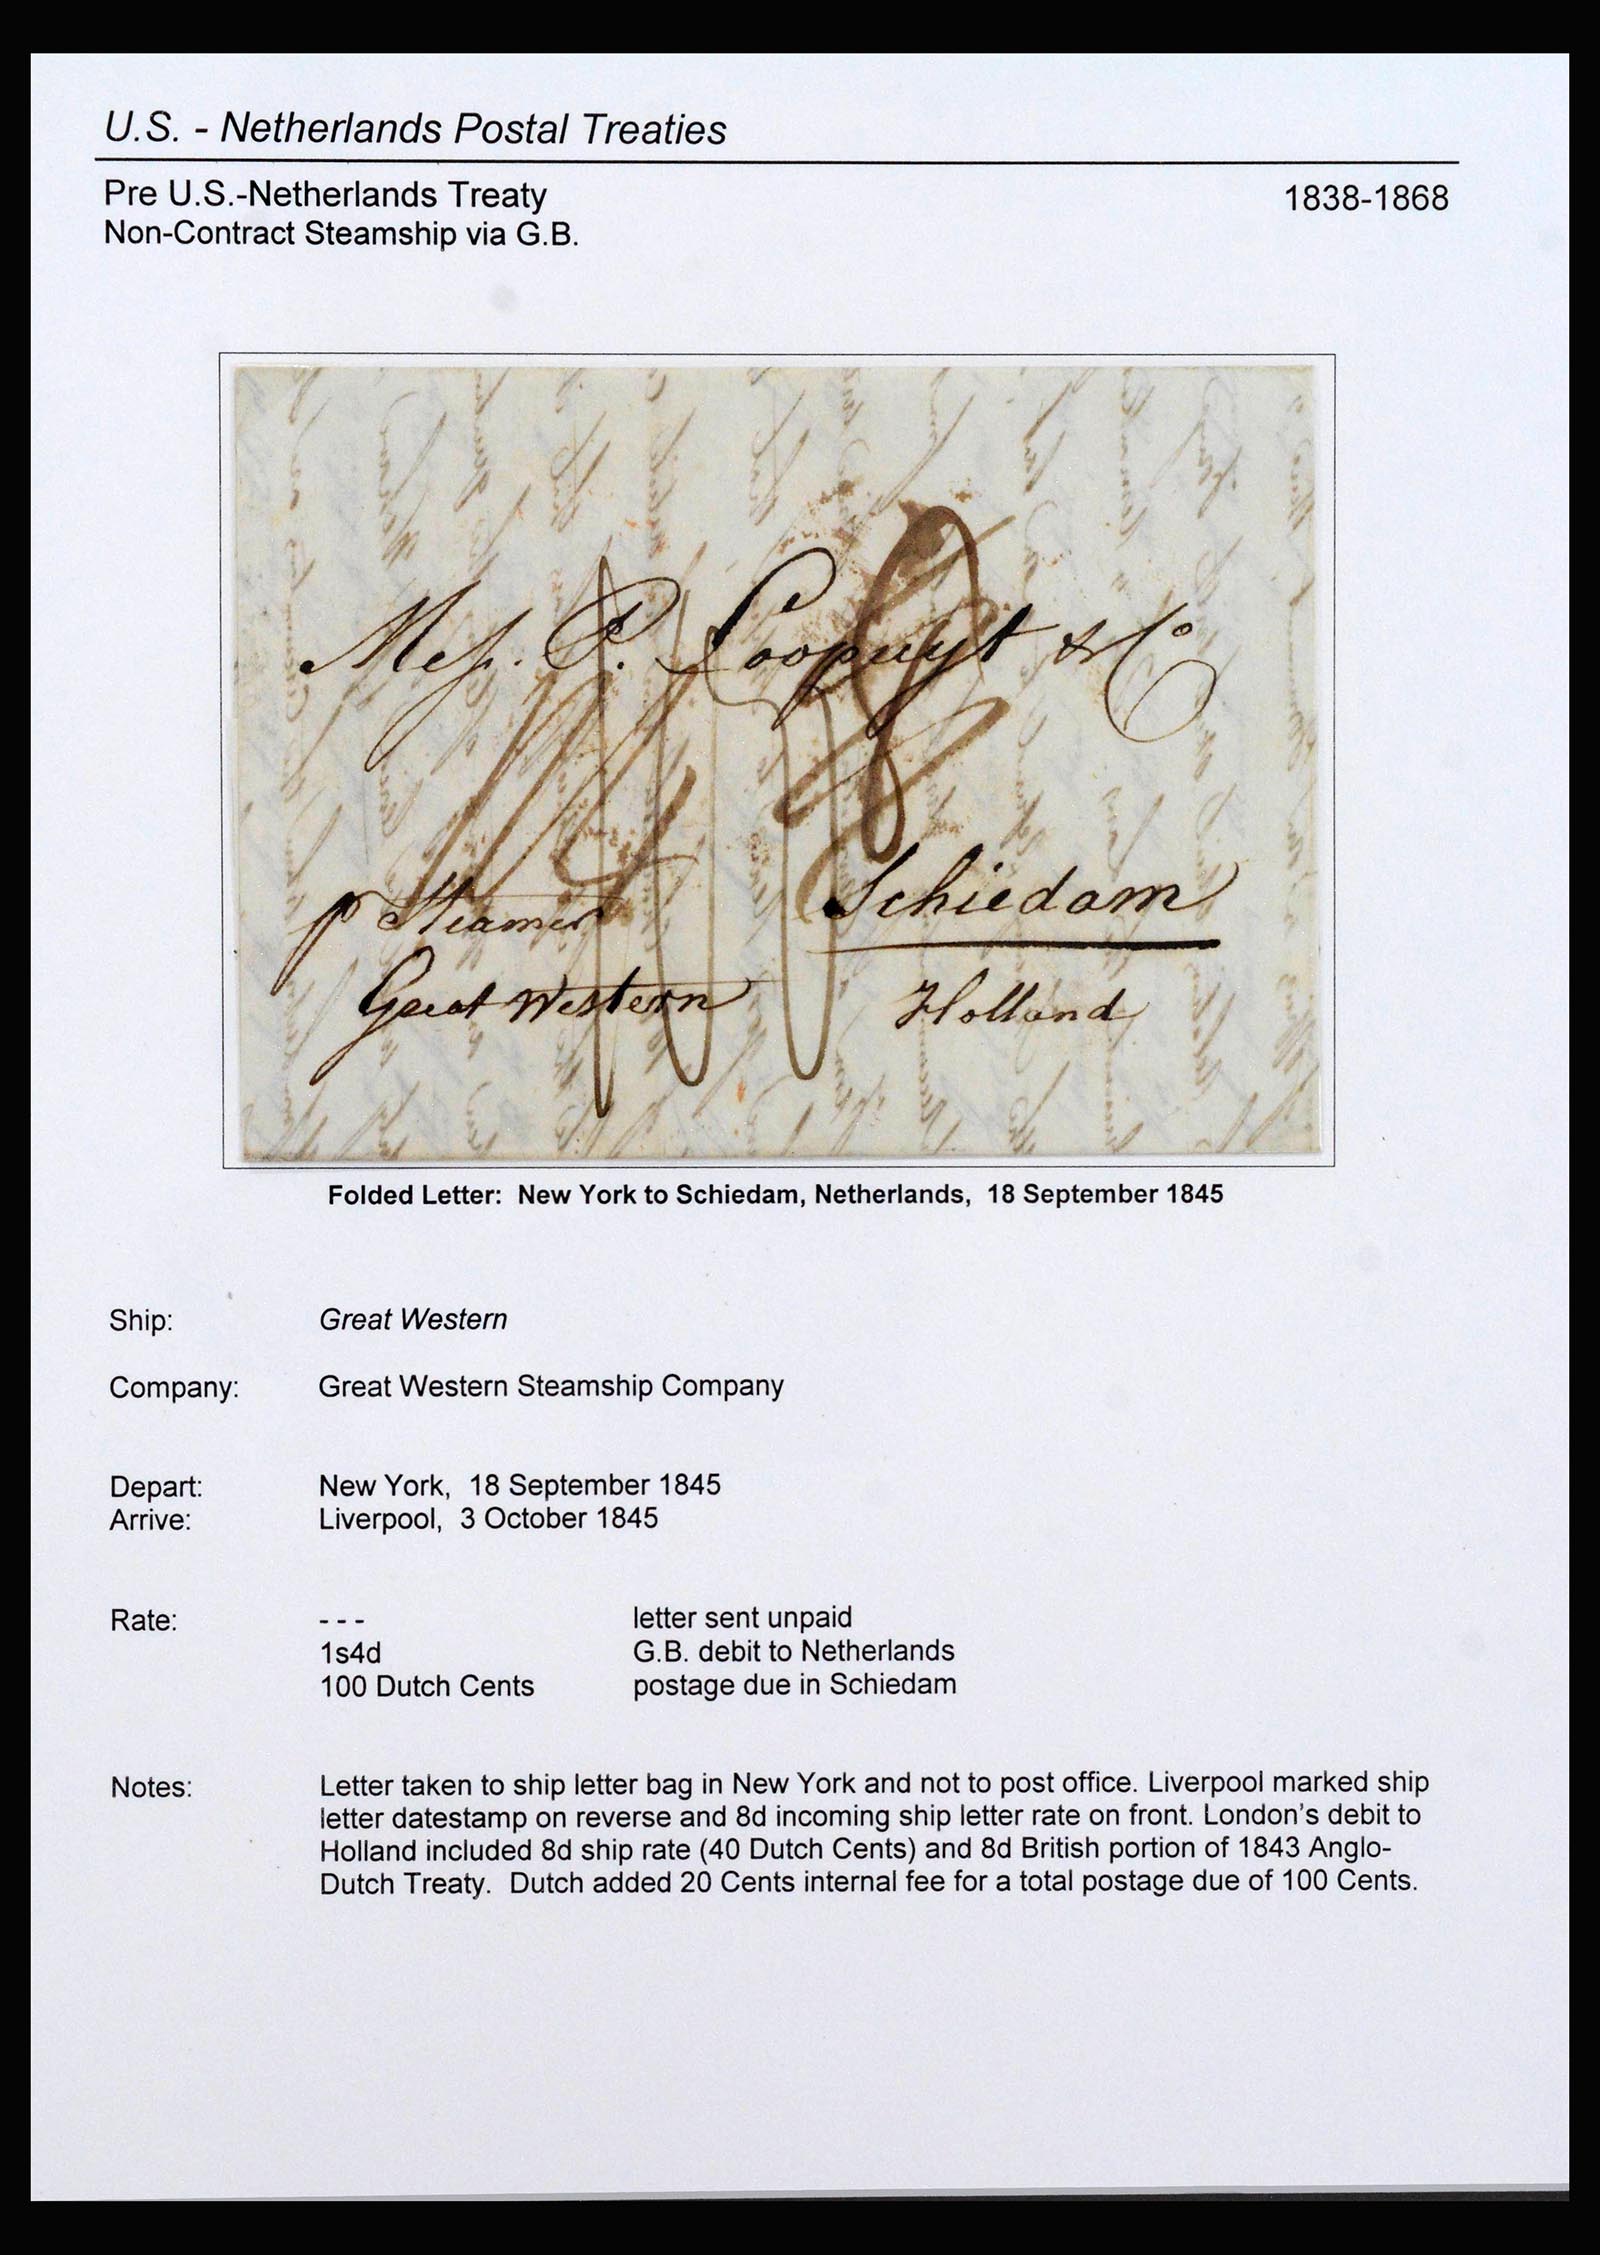 U.S. - Netherlands Postal Treaties
Pre U.S.-Netherlands Treaty 1838-1868
Non-Contract Steamship via G.B.
Mess. P. Loopuyt & Co
Schiedam
p Steamer
Great Western
Holland
Folded Letter: New York to Schiedam, Netherlands, 18 September 1845
Ship: Great Western
Company: Great Western Steamship Company
Depart: New York, 18 September 1845
Arrive: Liverpool, 3 October 1845
Rate: - - - letter sent unpaid
1s4d G.B. debit to Netherlands
100 Dutch Cents postage due in Schiedam
Notes: Letter taken to ship letter bag in New York and not to post office. Liverpool marked ship
letter datestamp on reverse and 8d incoming ship letter rate on front. London's debit to
Holland included 8d ship rate (40 Dutch Cents) and 8d British portion of 1843 Anglo-
Dutch Treaty. Dutch added 20 Cents internal fee for a total postage due of 100 Cents.